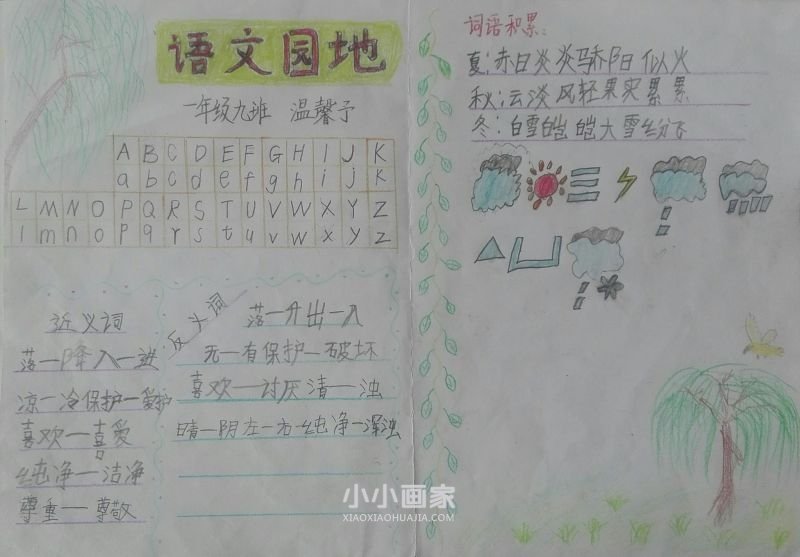 语文园地
一年级九班 温馨予
A B C D E F G H I J K
a b c d e f g h i j k
L M N O P Q R S T U V W X Y Z
l m n o p q r s t u v w x y z
近义词
落—降入—进
凉—冷保护—爱护
喜欢—喜爱
纯净—洁净
尊重—尊敬
反义词
落—升出—入
无—有保护—破坏
喜欢—讨厌清—浊
晴—阴左—右纯净—浑浊
词语积累:
夏:赤日炎炎骄阳似火
秋:云淡风轻果实累累
冬:白雪皑皑大雪纷下
小小画家
XIAOXIAOHUAJIA.COM